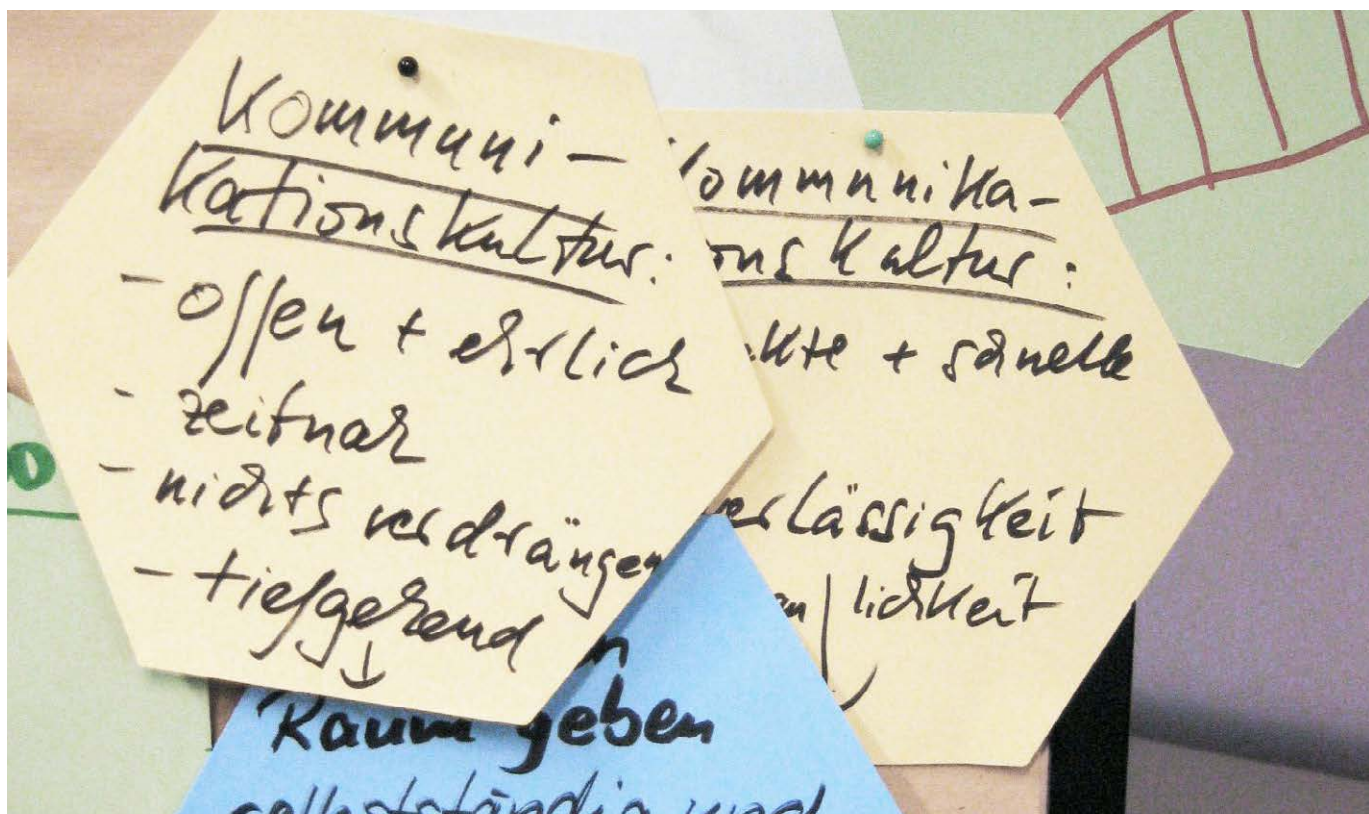 Kommuni-
kationskultur:
- offen + ehrlich
- zeitnah
- nichts verdrängen
- tiefgehend
ommunika-
ons kultur:
kte + schnelle
erlässigkeit
lichkeit
Raum geben
selbstständig und